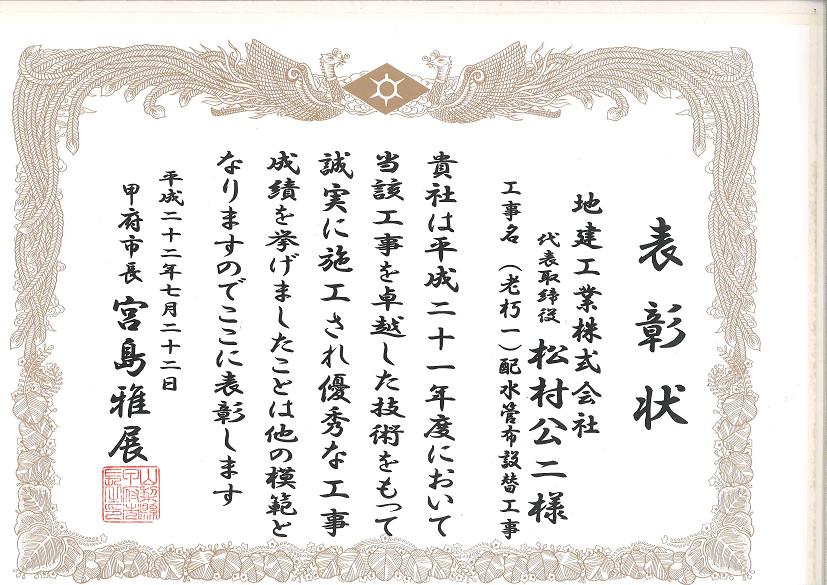 表彰状
地建工業株式会社
代表取締役 松村公二様
工事名（老朽一）配水管布設替工事
貴社は平成二十一年度において
当該工事を卓越した技術をもって
誠実に施工され優秀な工事
成績を挙げましたことは他の模範と
なりますのでここに表彰します
平成二十二年七月二十二日
甲府市長 宮島雅展